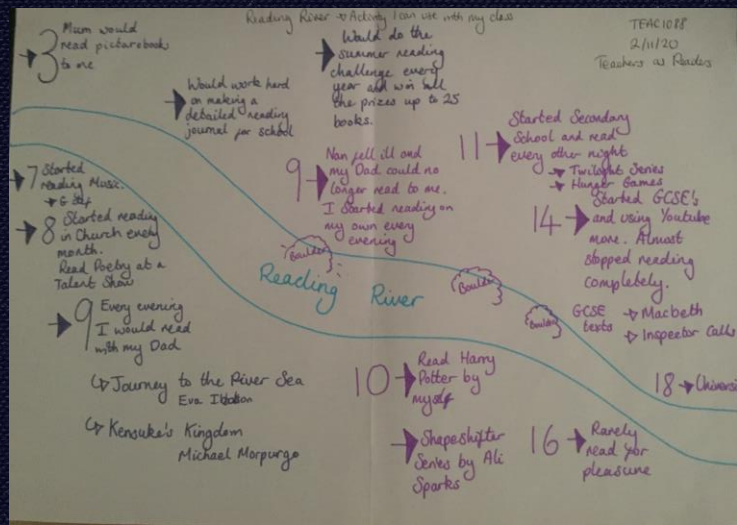 Reading River → Activity I can use with my class
TEAC1088
2/11/20
Teachers as Readers
3 Mum would
read picturebooks
to me
Would work hard
on making a
detailed reading
journal for school
Would do the
summer reading
challenge every
year and win all
the prizes up to 25
books.
7 Started
reading Music.
8 Started reading
in Church every
month.
Read Poetry at a
Talent Show
9 Every evening
I would read
with my Dad
↳ Journey to the River Sea
Eva Ibbotson
↳ Kensuke's Kingdom
Michael Morpurgo
9 Nan fell ill and
my Dad could no
longer read to me.
I started reading on
my own every
evening
Boulder
Reading River
Boulder
Boulder
10 Read Harry
Potter by
myself
Shapeshifter
Series by Ali
Sparks
11 Started Secondary
School and read
every other night
→ Twilight Series
→ Hunger Games
14 Started GCSE's
and using Youtube
more. Almost
stopped reading
completely.
GCSE texts → Macbeth
→ Inspector Calls
16 Rarely
read for
pleasure
18 → Universi